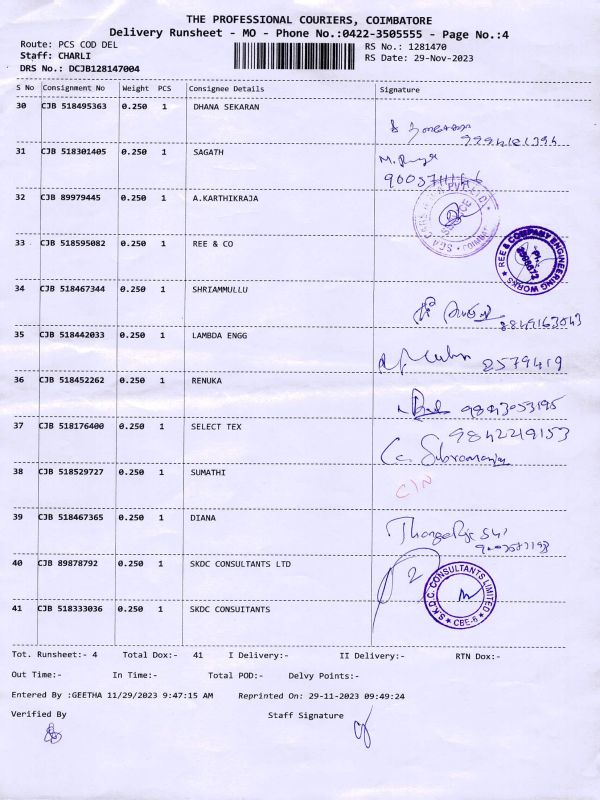 THE PROFESSIONAL COURIERS, COIMBATORE
Delivery Runsheet - MO - Phone No.:0422-3505555 - Page No.:4
Route: PCS COD DEL
RS No.: 1281470
Staff: CHARLI
RS Date: 29-Nov-2023
DRS No.: DCJB128147004
S No Consignment No Weight PCS Consignee Details Signature
30 CJB 518495363 0.250 1 DHANA SEKARAN
31 CJB 518301405 0.250 1 SAGATH
32 CJB 89979445 0.250 1 A.KARTHIKRAJA
33 CJB 518595082 0.250 1 REE & CO
REE & COMPANY ENGINEERING WORKS
34 CJB 518467344 0.250 1 SHRIAMMULLU
35 CJB 518442033 0.250 1 LAMBDA ENGG
8579419
36 CJB 518452262 0.250 1 RENUKA
9843053195
37 CJB 518176400 0.250 1 SELECT TEX
9842219153
38 CJB 518529727 0.250 1 SUMATHI
C/N
39 CJB 518467365 0.250 1 DIANA
40 CJB 89878792 0.250 1 SKDC CONSULTANTS LTD
S.K.D.C. CONSULTANTS LIMITED
CBE-6
41 CJB 518333036 0.250 1 SKDC CONSUITANTS
Tot. Runsheet:- 4 Total Dox:- 41 I Delivery:- II Delivery:- RTN Dox:-
Out Time:- In Time:- Total POD:- Delvy Points:-
Entered By :GEETHA 11/29/2023 9:47:15 AM Reprinted On: 29-11-2023 09:49:24
Verified By Staff Signature